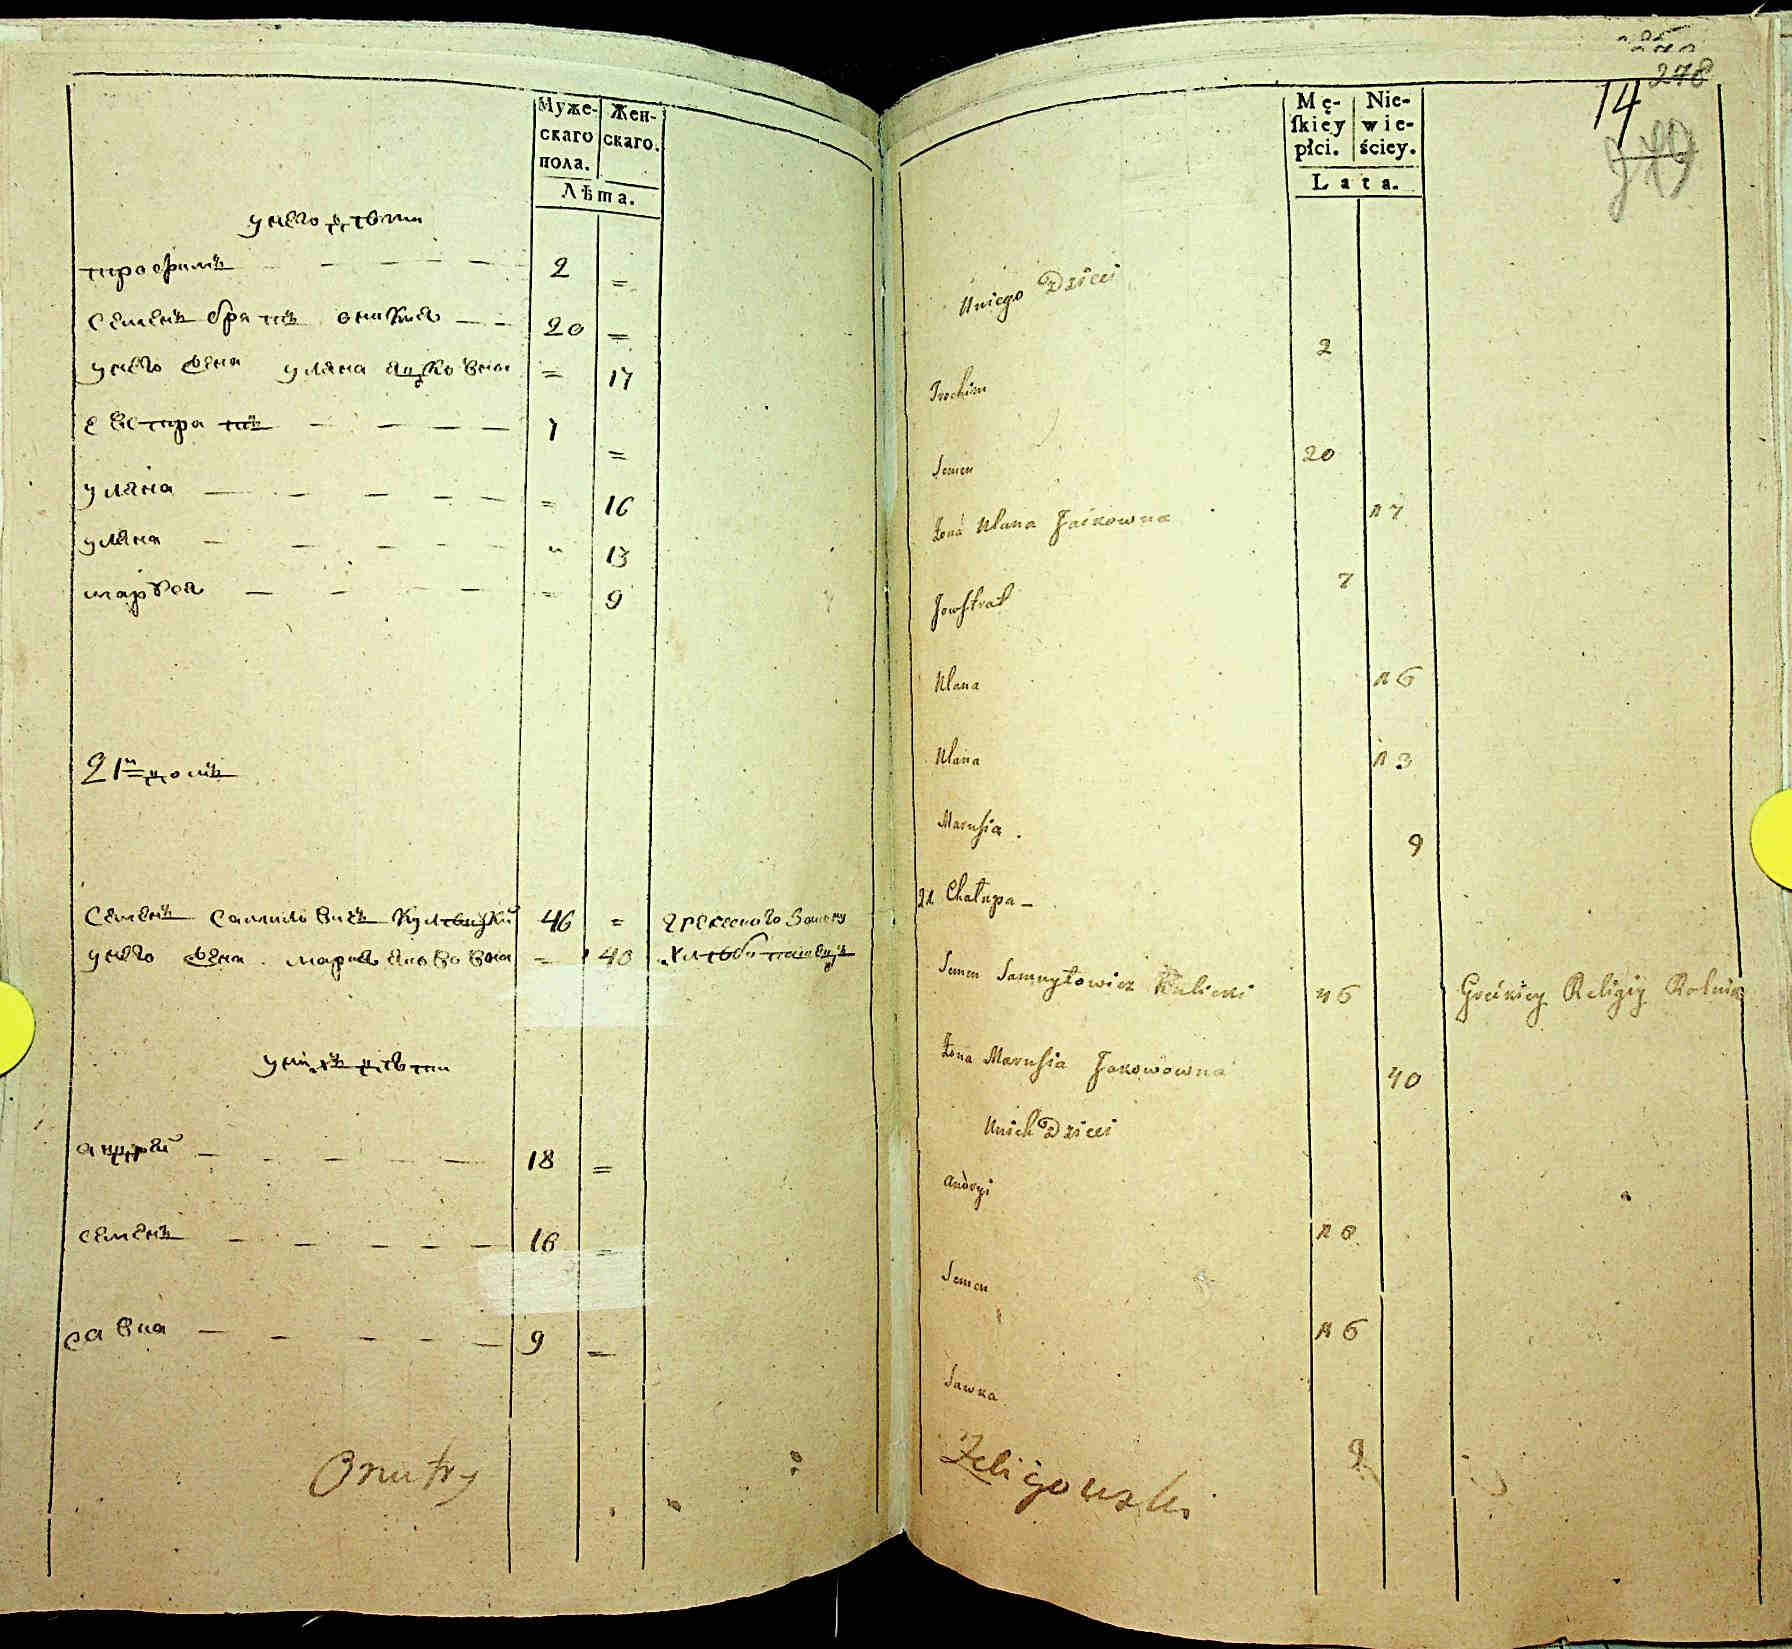 Муже-
скаго
пола.
Жен-
скаго.
Лѣта.
у него дѣти
трофимъ 2 =
Семенъ братъ 20 =
у него жена уляна = 17
евстратъ 7 =
уляна = 16
уляна " 13
маруся = 9
21й домъ
Семенъ Самуиловичъ 46 = греческаго закону
у него жена марья = 40 хлебопашецъ
у нихъ дѣти
андрей 18 =
семенъ 16 =
савка 9 =
278
14
Mę-
ſkiey
płci.
Nie-
wie-
ściey.
Lata.
Uniego Dzieci
Trochim 2
Semen 20
Żona Ulana Jackowna 17
Jowſtrat 7
Ulana 16
Ulana 13
Maruſia . 9
21 Chałupa –
Semen Samuyłowicz Kulicki 46 Greckiey Religiy Rolnik
Żona Maruſia Jakowowna 40
Unich Dzieci
Andryi 18
Semen 16
Sawka 9
Żeligowski